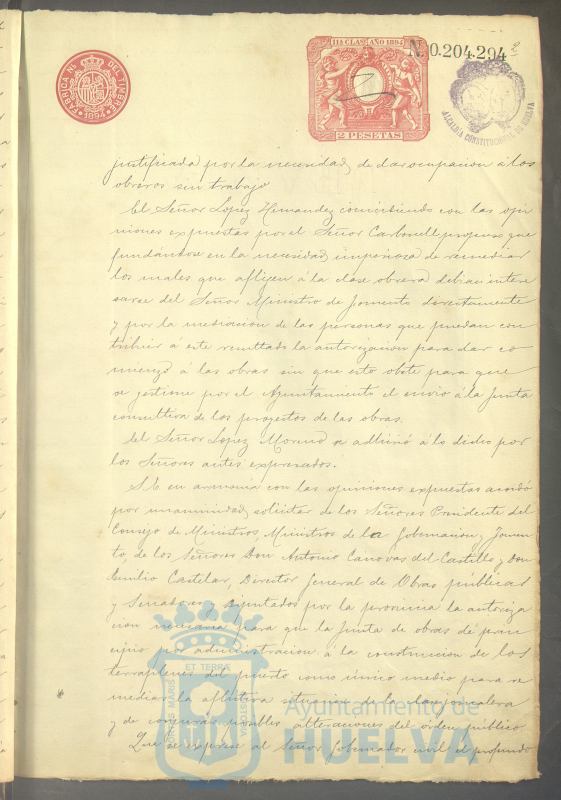 FABRICA NL DEL TIMBRE 1894
11ª CLAS. AÑO 1894
2 PESETAS
N. 0.204.294
ALCALDIA CONSTITUCIONAL DE HUELVA
justificada por la necesidad, de dar ocupacion á los
obreros sin trabajo
El Señor Lopez Hernandez coincidiendo con las opi
niones expuestas por el Señor Carbonell propuso que
fundándose en la necesidad imperiosa de remediar
los males que aflijen á la clase obrera debia intere
sarse del Señor Ministro de Fomento directamente
y por la mediacion de las personas que puedan con
tribuir á este resultado la autorizacion para dar co
mienzo á las obras sin que esto obste para que
se gestione por el Ayuntamiento el envio á la Junta
consultiva de los proyectos de las obras.
El Señor Lopez Moreno se adhirió á lo dicho por
los Señores antes expresados.
S.E. en armonia con las opiniones expuestas acordó
por unanimidad, solicitar de los Señores Presidente del
Consejo de Ministros, Ministros de la Gobernacion y Fomen
to, de los Señores Don Antonio Cánovas del Castillo y Don
Emilio Castelar, Director General de Obras públicas
y Senadores y Diputados por la provincia la autoriza
cion necesaria para que la Junta de obras dé prin
cipio en administracion á la construccion de los
terraplenes del puerto como único medio para re
mediar la aflictiva situacion de la clase obrera
y de conjurar posibles alteraciones del órden público
Que se exprese al Señor Gobernador civil el profundo
PORTUS MARIS ET TERRÆ CUSTODIA
Ayuntamiento de
HUELVA